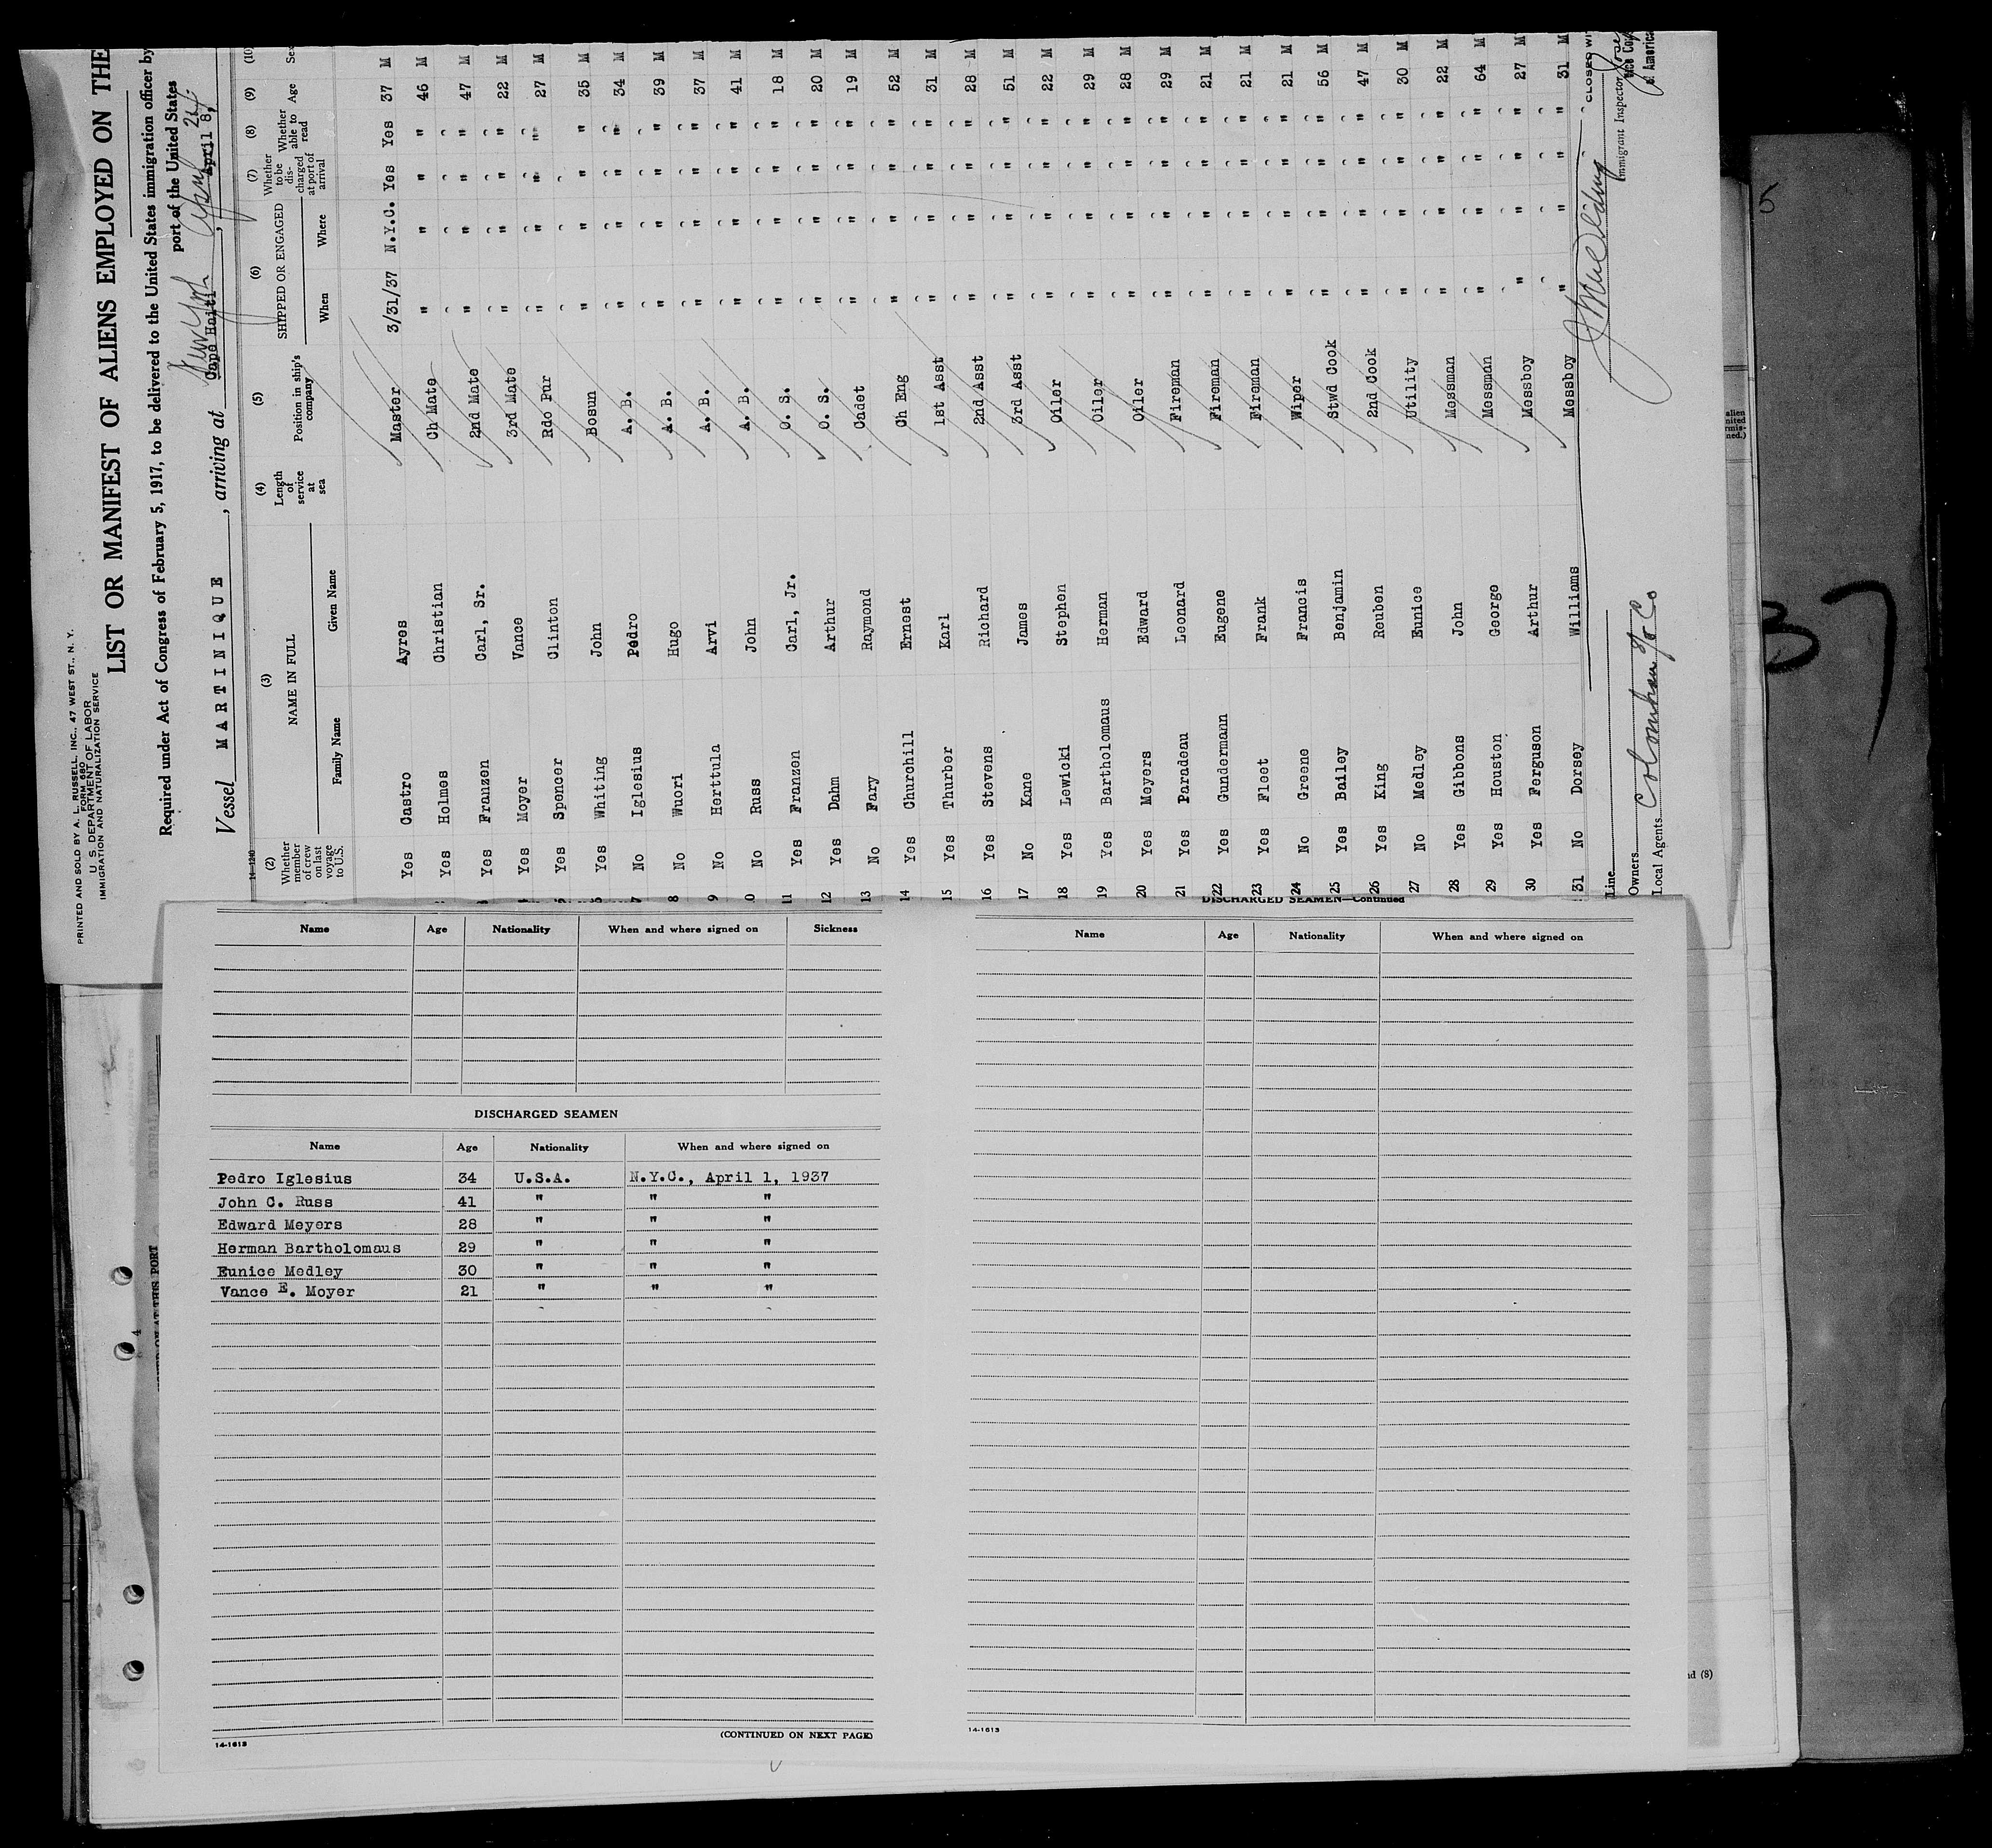 PRINTED AND SOLD BY A. L. RUSSELL, INC., 47 WEST ST., N. Y.
FORM 680
U. S. DEPARTMENT OF LABOR
IMMIGRATION AND NATURALIZATION SERVICE
LIST OR MANIFEST OF ALIENS EMPLOYED ON THE
Required under Act of Congress of February 5, 1917, to be delivered to the United States immigration officer by
port of the United States
Vessel MARTINIQUE , arriving at Cape Haiti , April 8,
14-1240
(2) Whether member of crew on last voyage to U.S.
(3) NAME IN FULL
Family Name Given Name
(4) Length of service at sea
(5) Position in ship's company
(6) SHIPPED OR ENGAGED
When Where
(7) Whether to be discharged at port of arrival
(8) Whether able to read
(9) Age
(10) Sex
Yes Castro Ayres Master 3/31/37 N.Y.C. Yes Yes 37 M
Yes Holmes Christian Ch Mate " " " " 46 M
Yes Franzen Carl, Sr. 2nd Mate " " " " 47 M
Yes Moyer Vance 3rd Mate " " " " 22 M
Yes Spencer Clinton Rdo Pur " " " " 27 M
Yes Whiting John Bosun " " " " 35 M
7 No Iglesius Pedro A. B. " " " " 34 M
8 No Wuori Hugo A. B. " " " " 39 M
9 No Herttula Arvi A. B. " " " " 37 M
10 No Russ John A. B. " " " " 41 M
11 Yes Franzen Carl, Jr. O. S. " " " " 18 M
12 Yes Dahm Arthur O. S. " " " " 20 M
13 No Fary Raymond Cadet " " " " 19 M
14 Yes Churchill Ernest Ch Eng " " " " 52 M
15 Yes Thurber Karl 1st Asst " " " " 31 M
16 Yes Stevens Richard 2nd Asst " " " " 28 M
17 No Kane James 3rd Asst " " " " 51 M
18 Yes Lewicki Stephen Oiler " " " " 22 M
19 Yes Bartholomaus Herman Oiler " " " " 29 M
20 Yes Meyers Edward Oiler " " " " 28 M
21 Yes Paradeau Leonard Fireman " " " " 29 M
22 Yes Gundermann Eugene Fireman " " " " 21 M
23 Yes Fleet Frank Fireman " " " " 21 M
24 No Greene Francis Wiper " " " " 21 M
25 Yes Bailey Benjamin Stwd Cook " " " " 56 M
26 Yes King Reuben 2nd Cook " " " " 47 M
27 No Medley Eunice Utility " " " " 30 M
28 Yes Gibbons John Messman " " " " 22 M
29 Yes Houston George Messman " " " " 64 M
30 Yes Ferguson Arthur Messboy " " " " 27 M
31 No Dorsey Williams Messboy " " " " 31 M
CLOSED WI
Line
Owners Colombian S/S Co
Local Agents
Immigrant Inspector
of America
Name Age Nationality When and where signed on Sickness
DISCHARGED SEAMEN
Name Age Nationality When and where signed on
Pedro Iglesius 34 U.S.A. N.Y.C., April 1, 1937
John C. Russ 41 " " "
Edward Meyers 28 " " "
Herman Bartholomaus 29 " " "
Eunice Medley 30 " " "
Vance E. Moyer 21 " " "
(CONTINUED ON NEXT PAGE)
14-1613
DISCHARGED SEAMEN—Continued
Name Age Nationality When and where signed on
14-1613
37